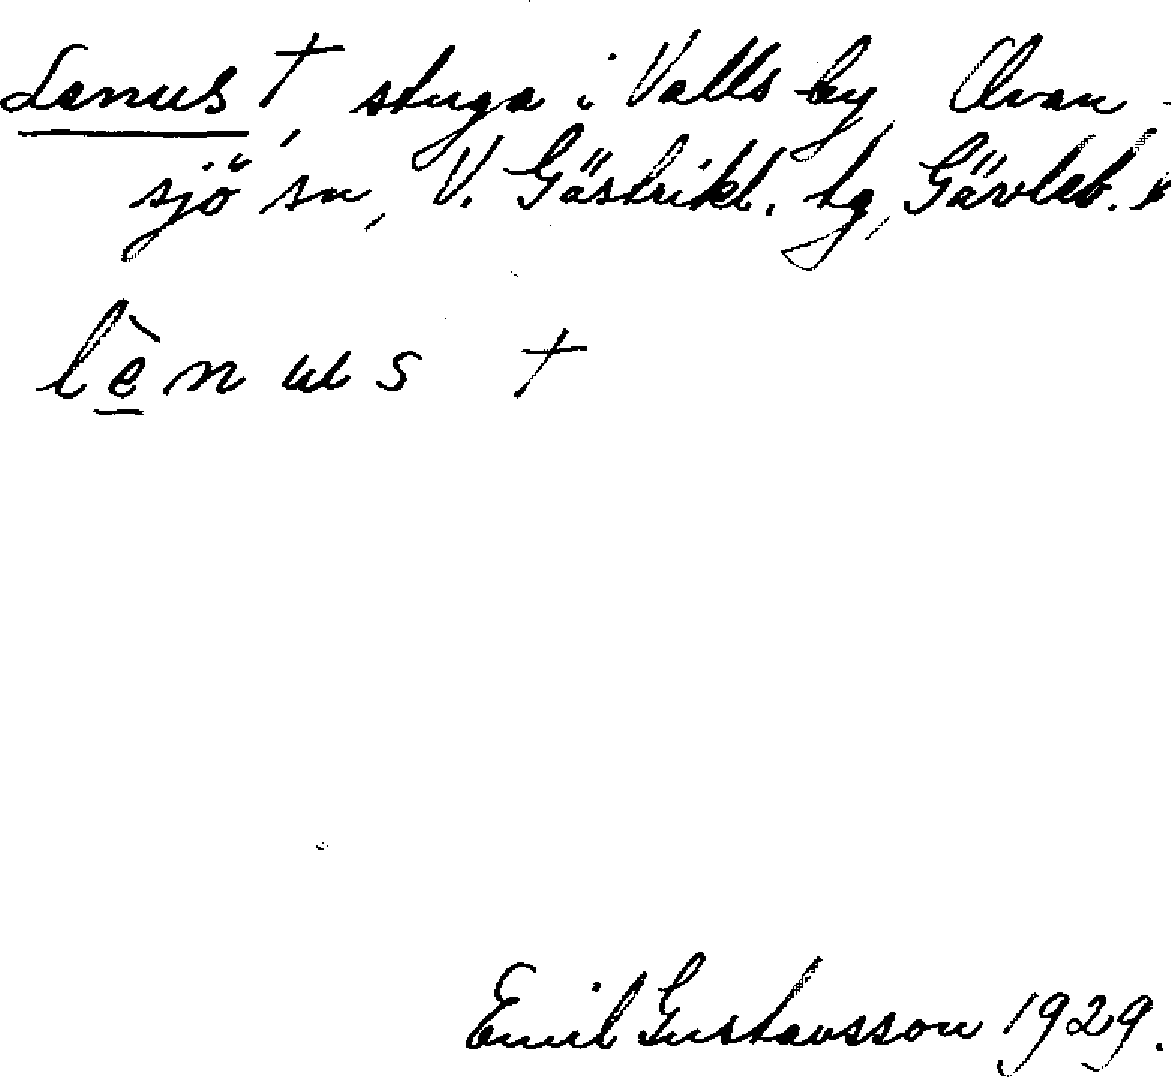 Lenus †, stuga i Valls by, Ovan-
sjö sn, V. Gästrikl. tg, Gävleb.
lènus †
Emil Gustavsson 1929.